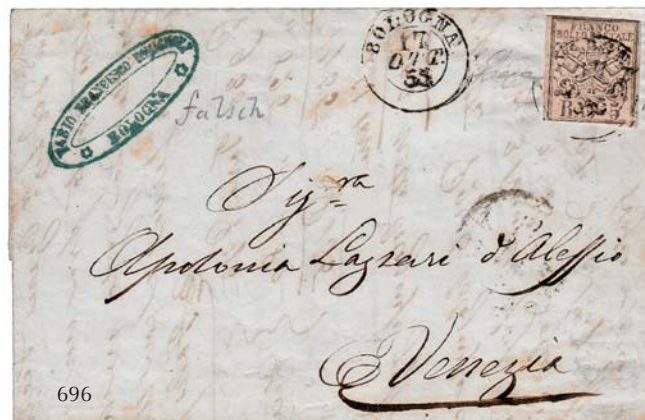 FABIO FRANCESCO
BOLOGNA
falsch
BOLOGNA
17
OTT.
55
FRANCO
BOLLO POSTALE
BAJ 5
Sig.ra
Apolonia Lazzari d'Alessio
Venezia
696